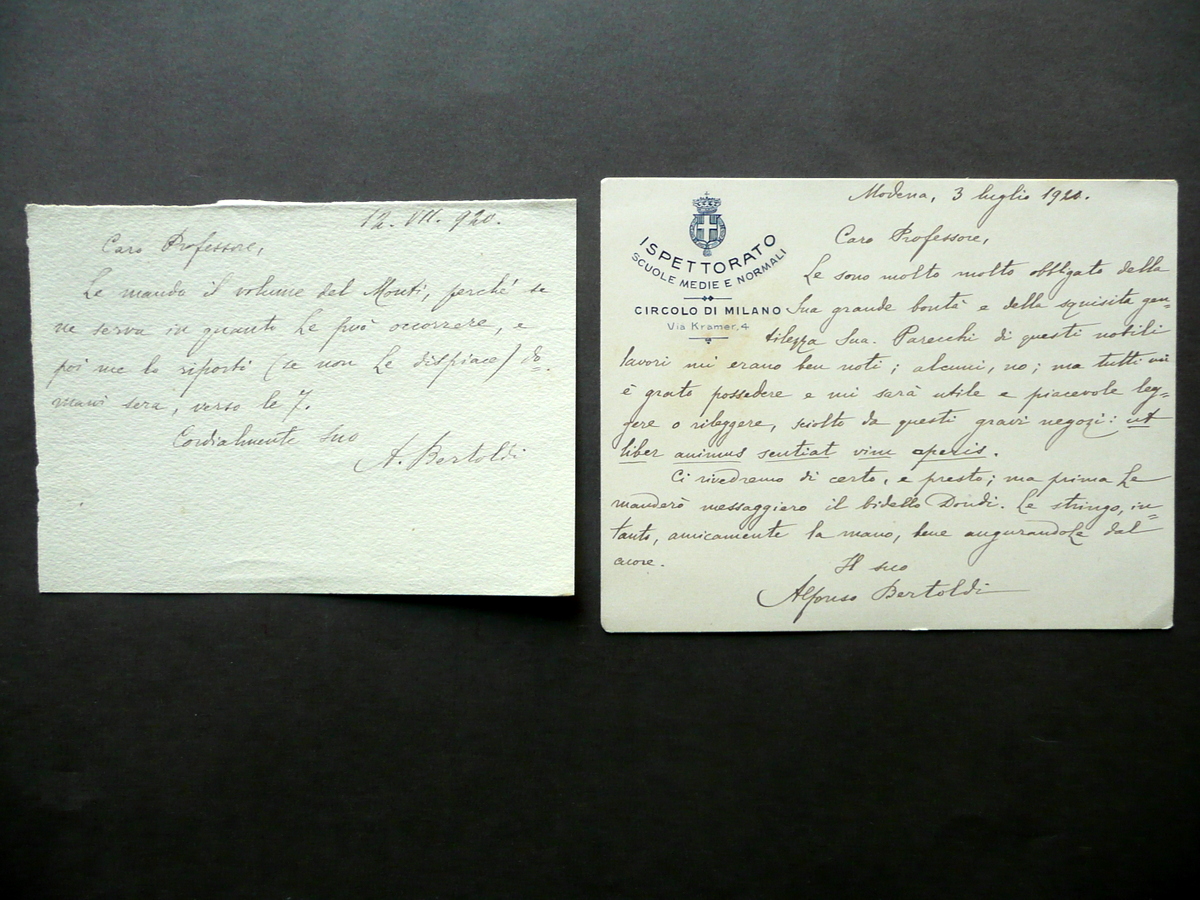 12. VII. 920.
Caro Professore,
Le mando il volume del Monti, perché se
ne serva in quanto Le può occorrere, e
poi me lo riporti (se non Le dispiace) do-
mani sera, verso le 7.
Cordialmente suo
A. Bertoldi
ISPETTORATO
SCUOLE MEDIE E NORMALI
CIRCOLO DI MILANO
Via Kramer, 4
Modena, 3 luglio 1920.
Caro Professore,
Le sono molto molto obbligato della
Sua grande bontà e della squisita gen-
tilezza Sua. Parecchi di questi nobili
lavori mi erano ben noti; alcuni, no; ma tutti mi
è grato possedere e mi sarà utile e piacevole leg-
gere o rileggere, sciolto da questi gravi negozi: ut
liber animus sentiat vim operis.
Ci rivedremo di certo, e presto; ma prima Le
manderò messaggiero il bidello Dondi. Le stringo, in-
tanto, amicamente la mano, bene augurandoLe dal
cuore.
Il suo
Alfonso Bertoldi